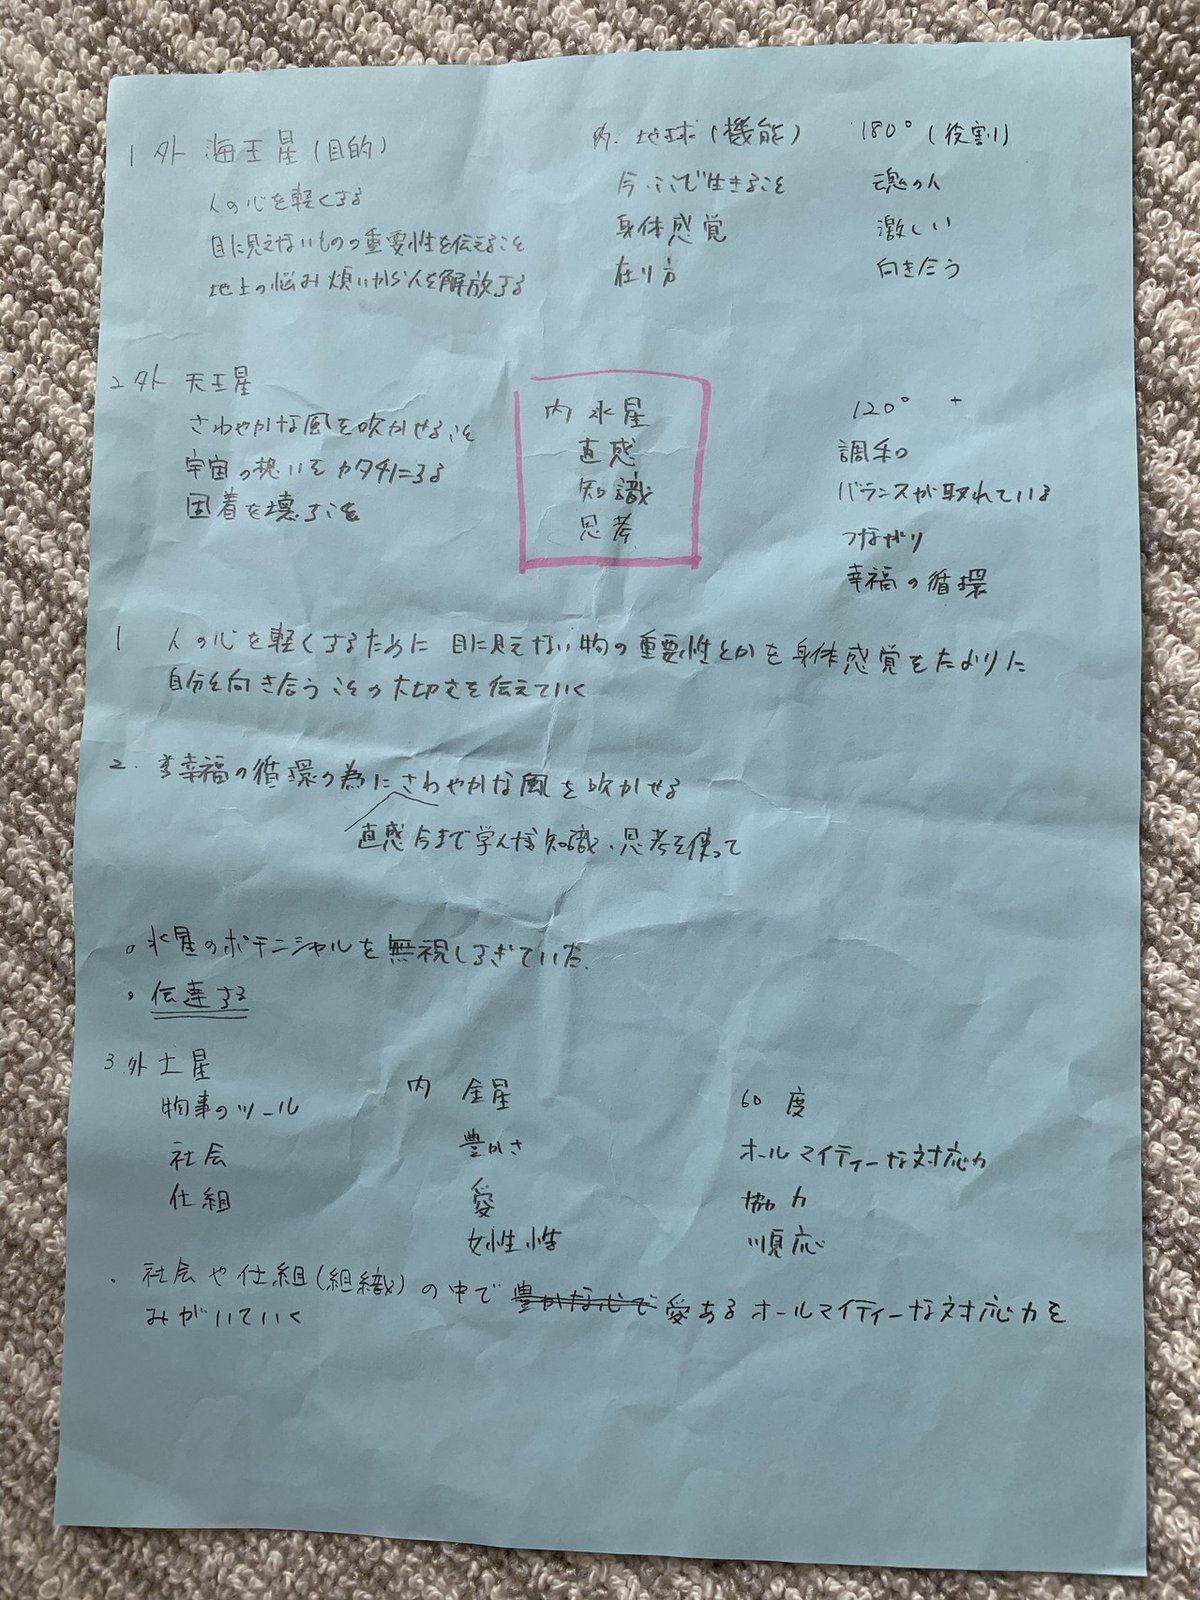 1 外 海王星(目的)
人の心を軽くする
目に見えないものの重要性を伝えること
地上の悩み煩いから人を解放する
内. 地球(機能)
今・ここで生きること
身体感覚
在り方
180°(役割)
魂の人
激しい
向き合う
2 外 天王星
さわやかな風を吹かせること
宇宙の想いをカタチにする
固着を壊すこと
内 水星
直感
知識
思考
120° +
調和の
バランスが取れている
つながり
幸福の循環
1 人の心を軽くするために 目に見えない物の重要性とかを身体感覚をたよりに
自分と向き合うことの大切さを伝えていく
2. 幸福の循環の為にさわやかな風を吹かせる
直感今まで学んだ知識・思考を使って
。水星のポテンシャルを無視しすぎていた.
。伝達する
3 外 土星
物事のツール
社会
仕組
内 金星
豊かさ
愛
女性性
60 度
オールマイティーな対応力
協力
順応
. 社会や仕組(組織)の中で 豊かな心で 愛あるオールマイティーな対応力を
みがいていく